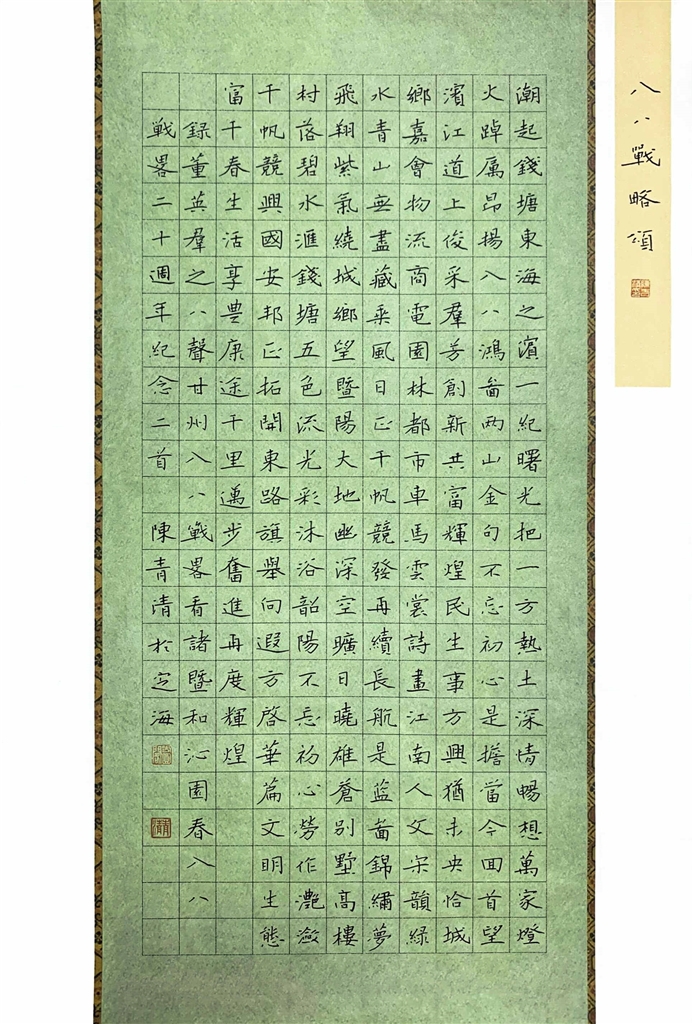 八八戰略頌
潮起錢塘東海之濱一紀曙光把一方熱土深情暢想萬家燈
火踔厲昂揚八八鴻啚兩山金句不忘初心是擔當今回首望
濱江道上俊采羣芳創新共富輝煌民生事方興猶未央恰城
鄉嘉會物流商電園林都市車馬雲裳詩畫江南人文宋韻綠
水青山無盡藏乘風日正千帆競發再續長航是藍啚錦繡夢
飛翔紫氣繞城鄉望暨陽大地幽深空曠日曉雄蒼別墅高樓
村落碧水滙錢塘五色流光彩沐浴韶陽不忘初心勞作灧瀲
千帆競興國安邦正拓開東路旗舉向遐方啓華篇文明生態
富千春生活享豊康途千里邁步奮進再度輝煌
錄董英羣之八聲甘州 八八戰畧看諸暨和沁園春八八
戰畧二十週年紀念二首 陳青清於定海